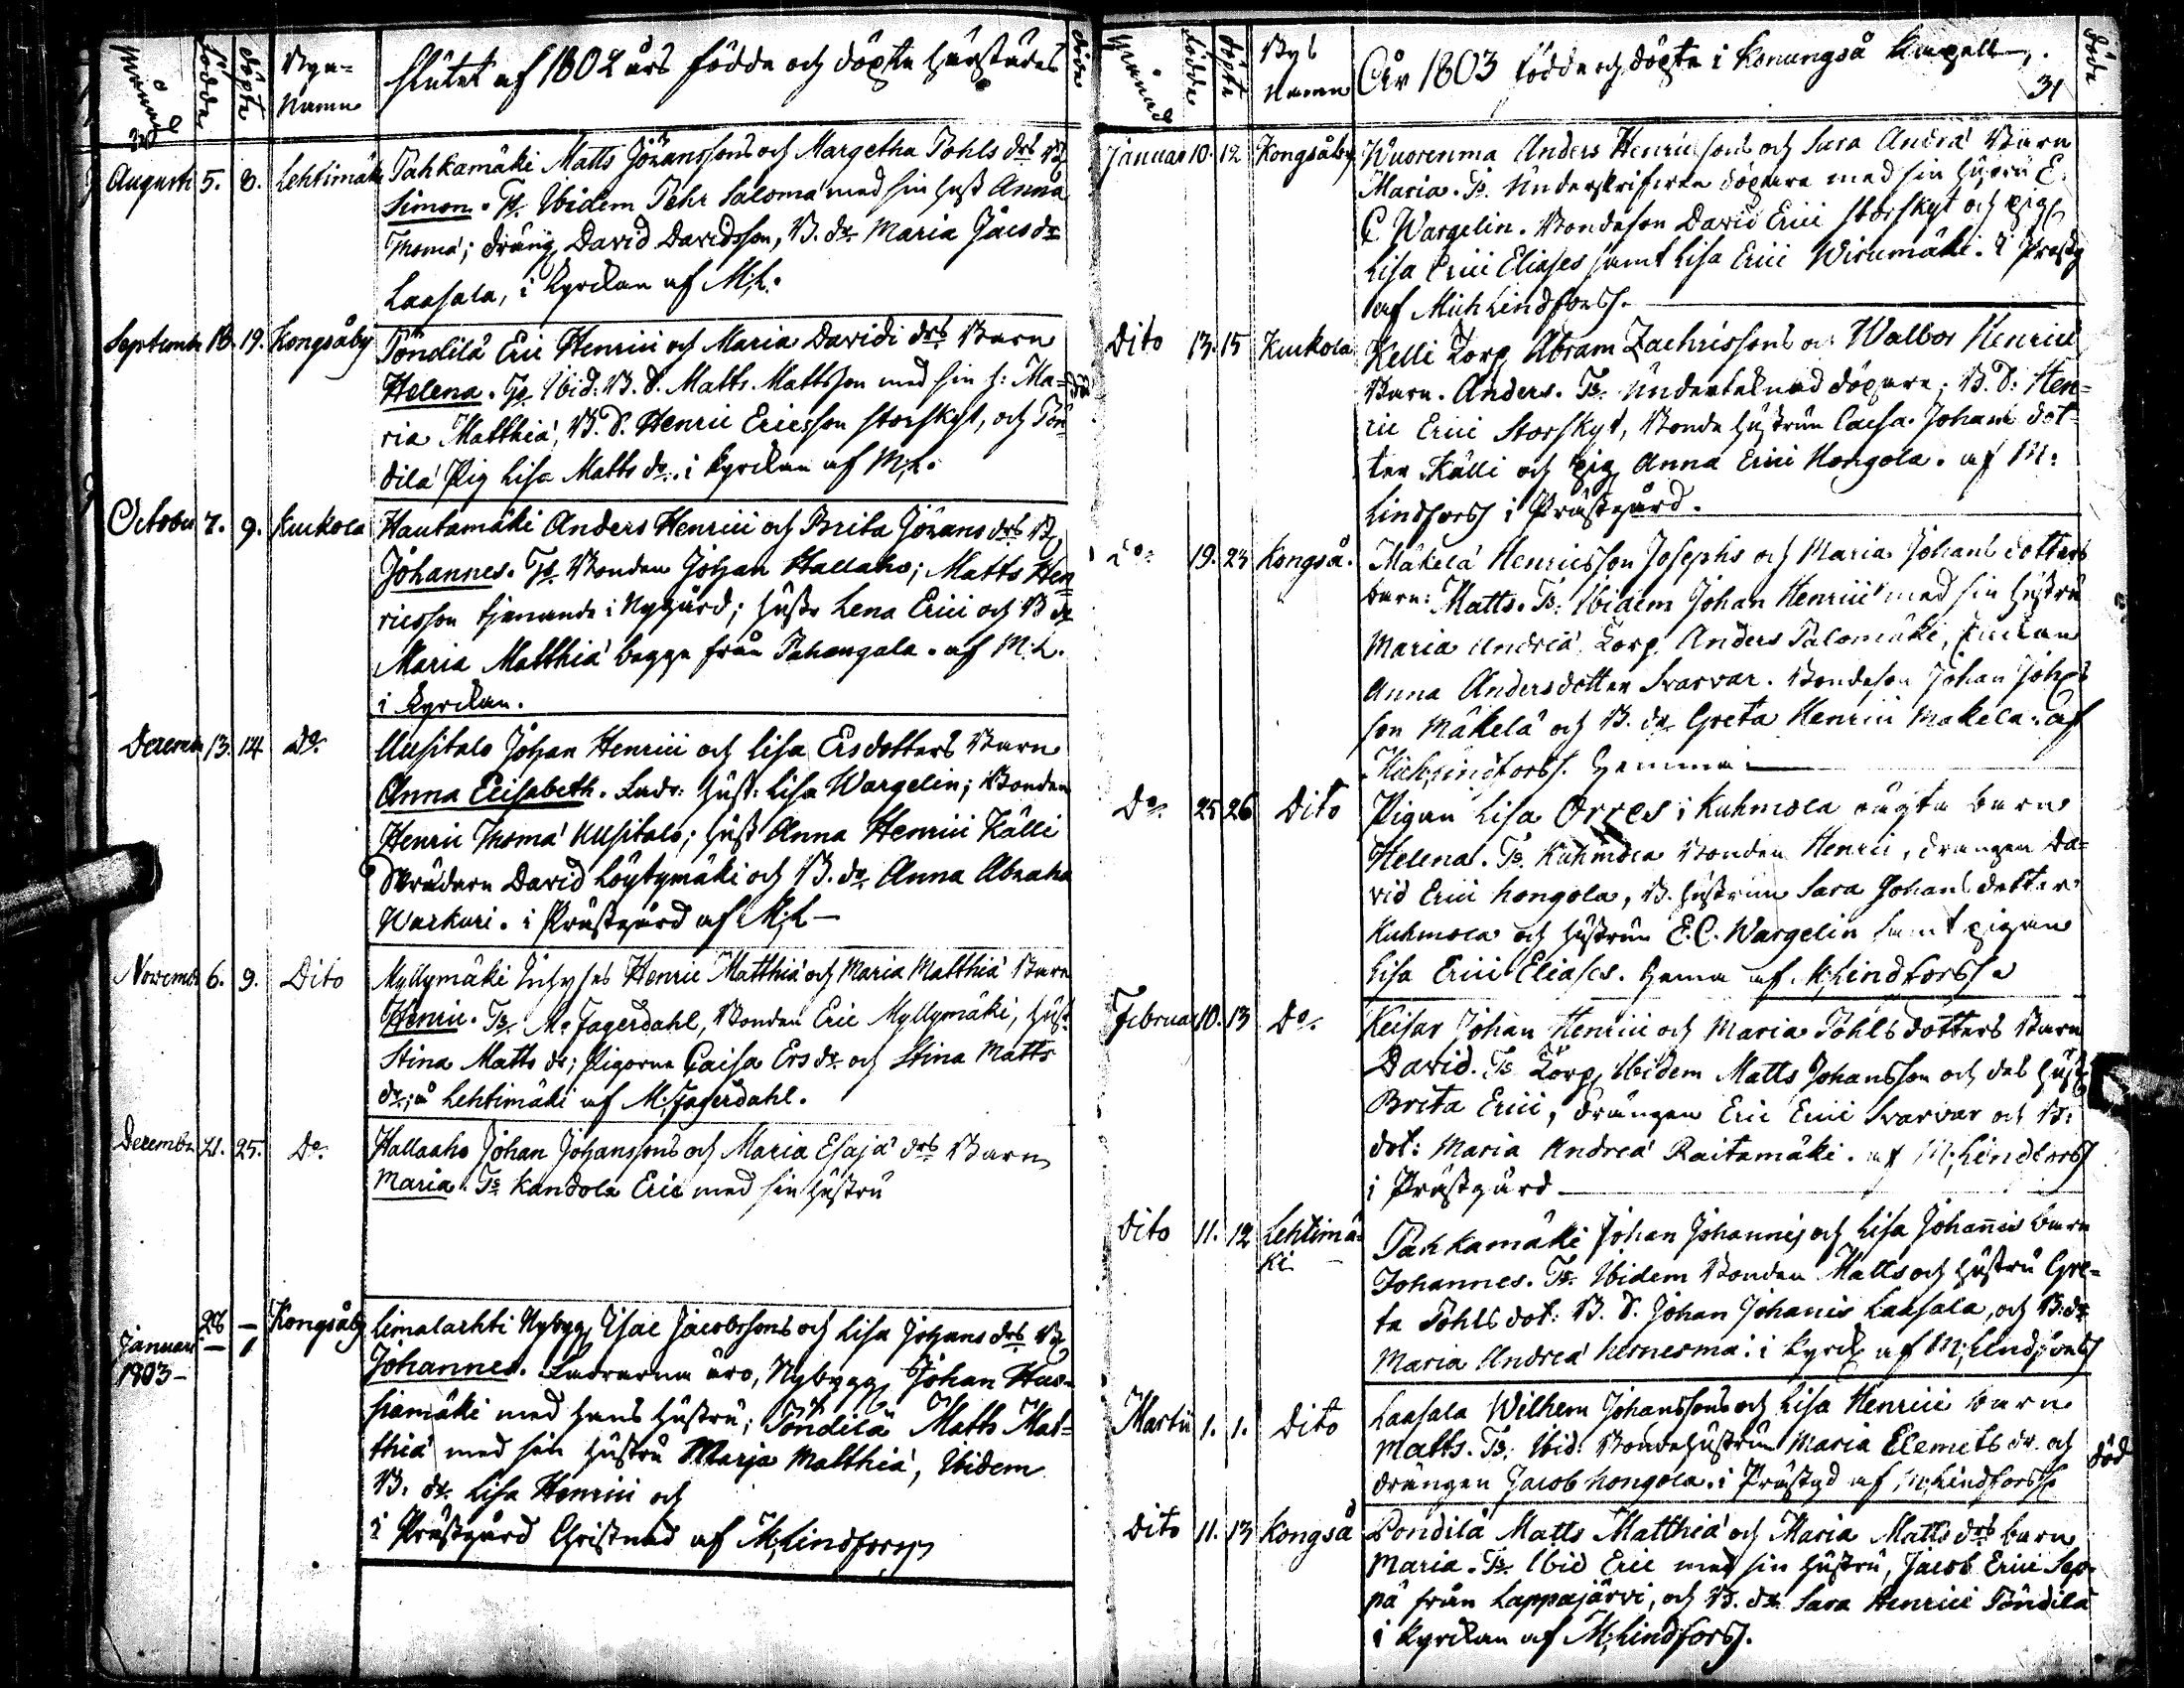 Månad
födde
döpte
Bya=
Namn
Slutet af 1802 års födde och döpte härstädes
döde
Augusti 5. 8. Lehtimäki Pahkamäki Matts Johanssons och Margetha Pohls drs B.
Simon. Ts. Ibidem Pehr Saloma med sin hust Anna
Thomæ; dräng David Davidsson, B. dr. Maria Jacs dr
Laasala, i kyrckan af M:L.
Septembr 18. 19. Kongsåby Töndilä Eric Henrici och Maria Davidi drs Barn
Helena. Ts. Ibid: B. S. Matts Mattsson med sin h: Ma=
ria Matthiæ, B. S. Henric Ericsson Storskyt, och Tön
dilä Pig Lisa Matts dr. i kyrckan af M:L.
October 7. 9. Kuckola Hautamäki Anders Henrici och Brita Johans drs B.
Johannes. Ts. Bonden Johan Hallaho; Matts Hen=
ricsson tjenande i Nygård; hustr Lena Erici och B dr
Maria Matthiæ begge från Pahangala. af M:L.
i kyrckan.
13. 14 Do. Uusitalo Johan Henrici och Lisa Ersdotters Barn
Anna Elisabeth. Fadr: Hust: Lisa Wargelin; Bonden
Henric Thomæ Uusitalo; Hust Anna Henrici Källi
Skrädaren David Löytymäki och B. dr. Anna Abraha
Warkari. i Prästgård af M:L
Novembr 6. 9. Dito Myllymäki Inhyses Henric Matthiæ och Maria Matthiæ Barn
Henric. Ts. M. Fagerdahl, Bonden Eric Myllymäki, Hust
Stina Matts dr; Pigorne Caisa Ers dr. och Stina Matts
dr; å Lehtimäki af M. Fagerdahl.
Decembr 21. 25. Do. Hallaaho Johan Johanssons och Maria Esajæ drs Barn
Maria. Ts. Kandola Eric med sin Hustru
28 — Kongsåby Limalachti Nybygg. Isac Jacobssons och Lisa Johans drs B.
Januari — 1 Johannes. Fadrarna äro, Nybygg. Johan Hus=
1803 siamäki med hans Hustru; Töndilä Matts Mat=
thiæ med sin Hustru Marja Matthiæ, Ibidem
B. dr. Lisa Henrici och
i Prästgård Christnad af M:Lindforss
Månad
födde
döpte
Bys
Namn
Åhr 1803 födde och döpte i Konungså Kapell.
31
döde
Januari 10. 12 Kongsåby Wuorenma Anders Henricsons och Sara Andreæ Barn
Maria. Ts. Underskrifven döpare med sin Hustru E.
C Wargelin. Bondeson David Erici Storskyt och pig.
Lisa Erici Eliases samt Lisa Erici Wirumäki. i Prästg
af Mich Lindforss.
Dito 13. 15 Kuckola Kelli Torp. Abram Zachrissons och Walbor Henrici
Barn. Anders. Ts. Undertecknad döpare; B. S: Hen=
ric Erici Storskyt, Bonde Hustrun Caisa Johani dot=
ter Källi och pig. Anna Erici Hongola. af M:
Lindforss i Prästgård.
Do 19. 23 Kongså. Mäkelä Henricsson Josephs och Maria Johans dotters
barn: Matts. Ts. Ibidem Johan Henrici med sin Hustru
Maria Andreæ, Torp. Anders Palomäki, Enckan
Anna Andersdotter Svarvar. Bondeson Johan Johans
son Mäkelä och B. dr Greta Henrici Mäkelä. af
Mich Lindforss. hemma
Do. 25 26 Dito Pigan Lisa Orres i Kuhmola oägta barn
Helena. Ts. Kuhmola Bonden Henric, drängen Da=
vid Erici Hongola, B. Hustrun Sara Johans dotter
Kuhmola och Hustrun E. C. Wargelin samt pigan
Lisa Erici Eliases. hema af M:Lindforss
Februar 10. 13 Do. Keisar Johan Henrici och Maria Pohls dotters Barn
David. Ts Torp. Ibidem Matts Johansson och des Hust
Brita Erici, drängen Eric Erici Svarvar och B:
dot: Maria Andreæ Raitamäki. af M:Lindforss
i Prästgård
Dito 11. 12 Lehtimä= Pahkamäki Johan Johannis och Lisa Johannis barn
ki Johannes. Ts. Ibidem Bonden Matts och Hustru Gre=
ta Pohls dot: B. S. Johan Johanis Laasala, och B. dr
Maria Andreæ Hernesmä. i Kyrck. af M:Lindforss
Martii 1. 1. Dito Laasala Wilhem Johanssons och Lisa Henrici barn
Matts. Ts. Ibid: Bondehustrun Maria Clemets dr. och
drängen Jacob Hongola. i Prästgd af M:Lindforss
död
Dito 11. 13 Kongså Pöndilä Matts Matthiæ och Maria Matts drs barn
Maria. Ts. Ibid Eric med sin Hustru, Jacob Erici Sep=
pä från Lappajärvi, och B. dr. Sara Henrici Töndilä
i kyrckan af M:Lindforss.